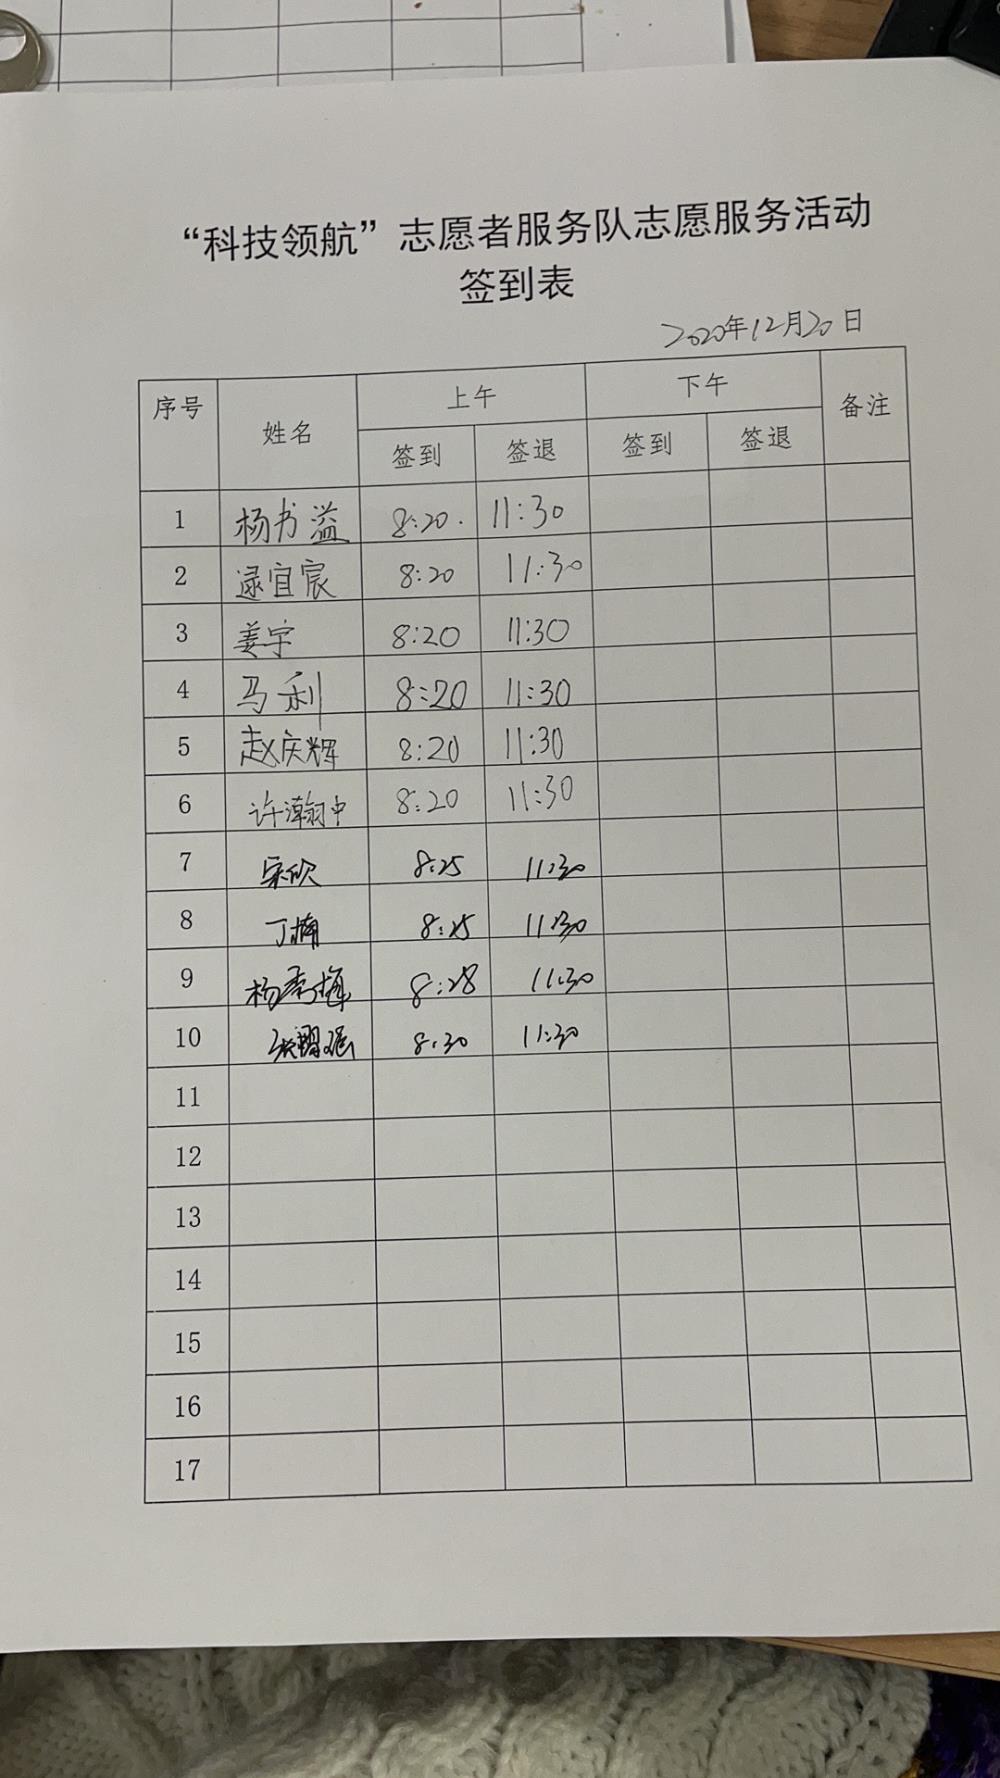 “科技领航”志愿者服务队志愿服务活动
签到表
2020年12月20日
序号 姓名 上午 下午 备注
签到 签退 签到 签退
1 杨书溢 8:20. 11:30
2 逯宜宸 8:20 11:30
3 姜宇 8:20 11:30
4 马利 8:20 11:30
5 赵庆辉 8:20 11:30
6 许瀚中 8:20 11:30
7 宋欣 8:25 11:30
8 丁楠 8:25 11:30
9 杨秀梅 8:28 11:30
10 8:30 11:30
11
12
13
14
15
16
17